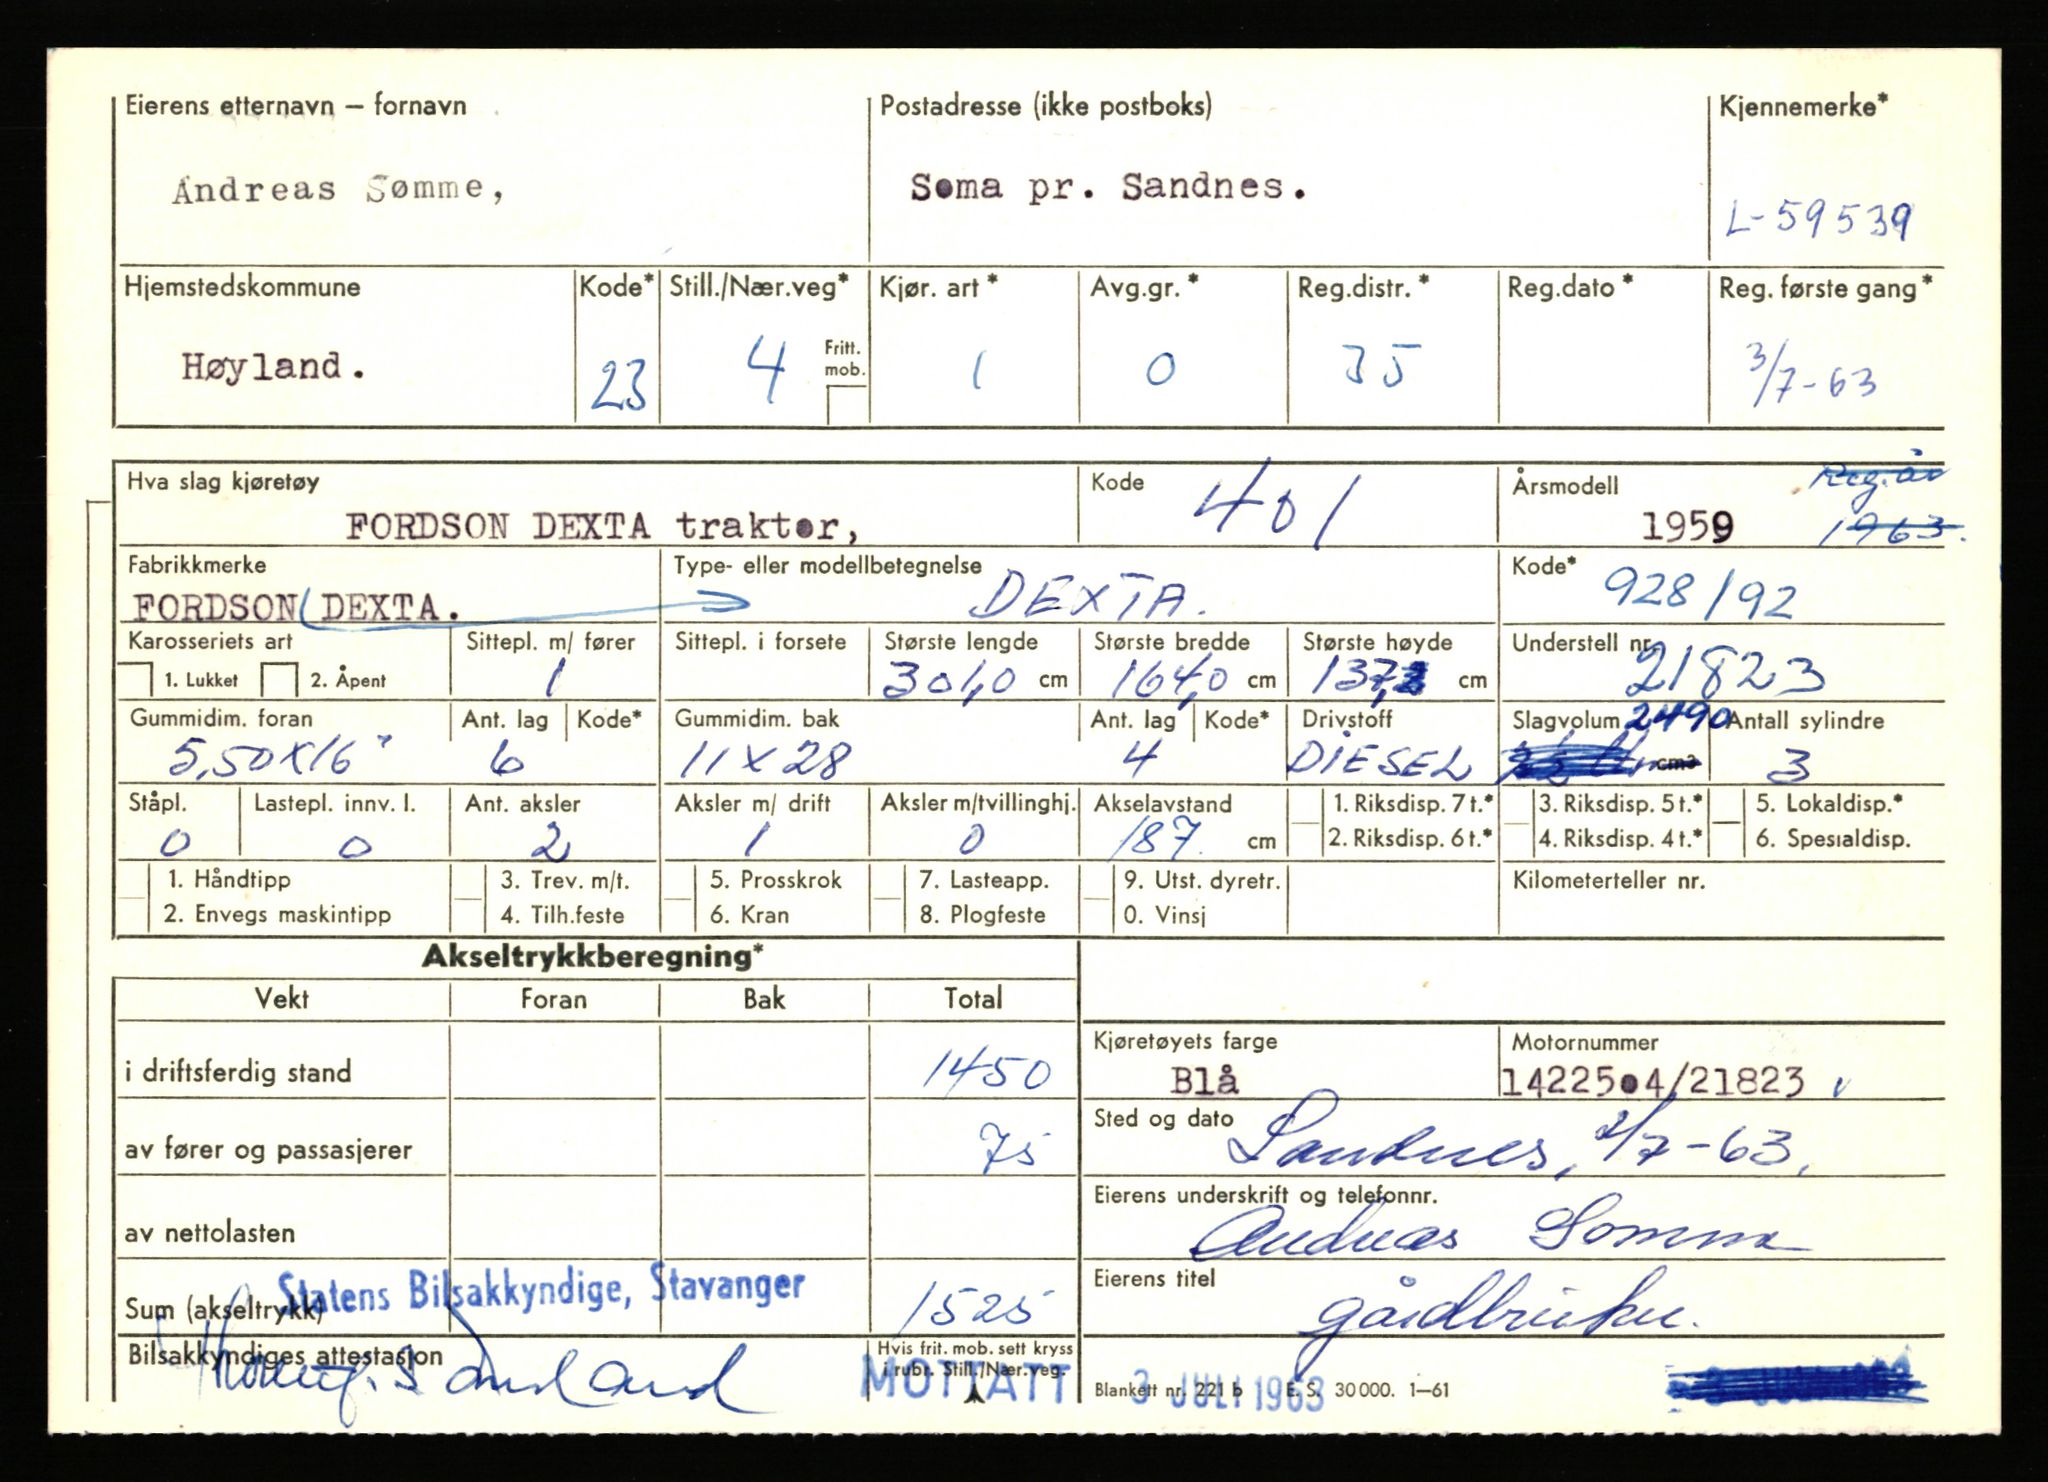 Eierens etternavn — fornavn
Postadresse (ikke postboks)
Kjennemerke*
Andreas Sømme,
Soma pr. Sandnes.
L-59539
Hjemstedskommune
Kode*
Still./Nær.veg*
Kjør. art *
Avg.gr. *
Reg.distr. *
Reg.dato *
Reg. første gang*
Høyland.
23
4
Fritt. mob.
1
0
35
3/7-63
Hva slag kjøretøy
FORDSON DEXTA traktor,
Kode
401
Årsmodell
1959
Reg.år
1963.
Fabrikkmerke
FORDSON DEXTA.
Type- eller modellbetegnelse
DEXTA.
Kode*
928/92
Karosseriets art
1. Lukket 2. Åpent
Sittepl. m/ fører
1
Sittepl. i forsete
Største lengde
301,0 cm
Største bredde
164,0 cm
Største høyde
137, cm
Understell nr.
21823
Gummidim. foran
5,50x16"
Ant. lag
6
Kode*
Gummidim. bak
11 x 28
Ant. lag
4
Kode*
Drivstoff
DIESEL
Slagvolum 2490
cm3
Antall sylindre
3
Ståpl.
0
Lastepl. innv. l.
0
Ant. aksler
2
Aksler m/ drift
1
Aksler m/tvillinghj.
0
Akselavstand
187 cm
1. Riksdisp. 7 t.*
2. Riksdisp. 6 t.*
3. Riksdisp. 5 t.*
4. Riksdisp. 4 t.*
5. Lokaldisp.*
6. Spesialdisp.
1. Håndtipp
2. Envegs maskintipp
3. Trev. m/t.
4. Tilh.feste
5. Prosskrok
6. Kran
7. Lasteapp.
8. Plogfeste
9. Utst. dyretr.
0. Vinsj
Kilometerteller nr.
Akseltrykkberegning*
Vekt
Foran
Bak
Total
i driftsferdig stand
1450
Kjøretøyets farge
Blå
Motornummer
14225o4/21823
av fører og passasjerer
75
Sted og dato
Sandnes, 2/7-63.
av nettolasten
Eierens underskrift og telefonnr.
Andreas Sømme
Sum (akseltrykk)
Statens Bilsakkyndige, Stavanger
1525
Eierens titel
gårdbruker.
Bilsakkyndiges attestasjon
Hvis frit. mob. sett kryss
i rubr. Still./Nær.veg.
MOTTATT 3 JULI 1963
Blankett nr. 221 b E. S. 30 000. 1—61